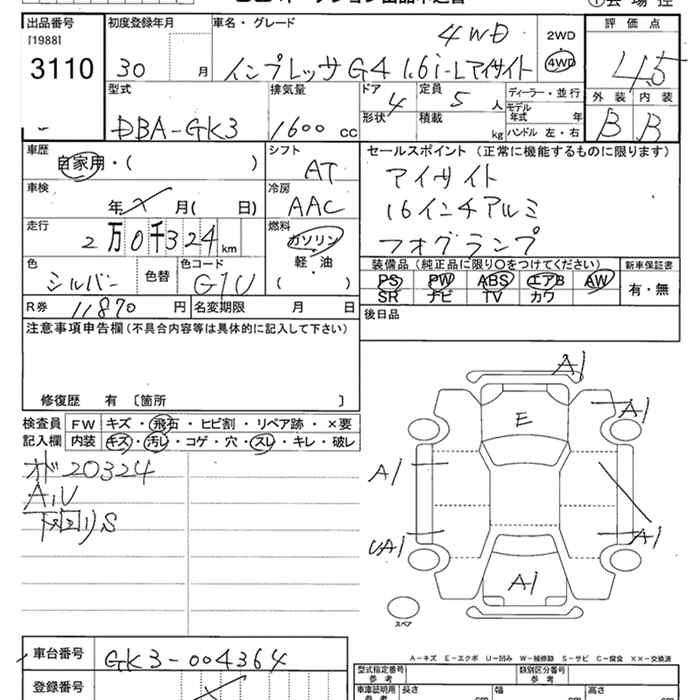 出品番号 初度登録年月 車名・グレード 4WD 2WD 評価点
[1988] 4WD
3110 30 月 インプレッサG4 1.6i-Lアイサイト 4.5
型式 排気量 ドア 4 定員 5 人 ディーラー・並行 外装 内装
DBA-GK3 1600 cc 形状 積載 kg モデル年式 年 B B
ハンドル 左・右
車歴 シフト セールスポイント (正常に機能するものに限ります)
自家用・( ) AT アイサイト
車検 冷房 16インチアルミ
年 月( 日) AAC フォグランプ
走行 燃料
2万0千324km ガソリン
軽・油
( )
色 色替 色コード
シルバー G1U
装備品 (純正品に限り〇をつけてください) 新車保証書
PS PW ABS エアB AW 有・無
SR ナビ TV カワ
R券 11870 円 名変期限 月 日 後日品
注意事項申告欄(不具合内容等は具体的に記入して下さい)
修復歴 有 〔箇所 〕
検査員 FW キズ・飛石・ヒビ割・リペア跡・×要
記入欄 内装 キズ・汚レ・コゲ・穴・スレ・キレ・破レ
オド20324
A,U
下回りS
A1
A1
E
A1
UA1
A1
A1
スペア
A-キズ E-エクボ U-凹み W-補修跡 S-サビ C-腐食 ××-交換済
車台番号 GK3-004364
登録番号
型式指定番号 参考 類別区分番号 参考
車庫証明用 参考 長さ cm 幅 cm 高さ cm